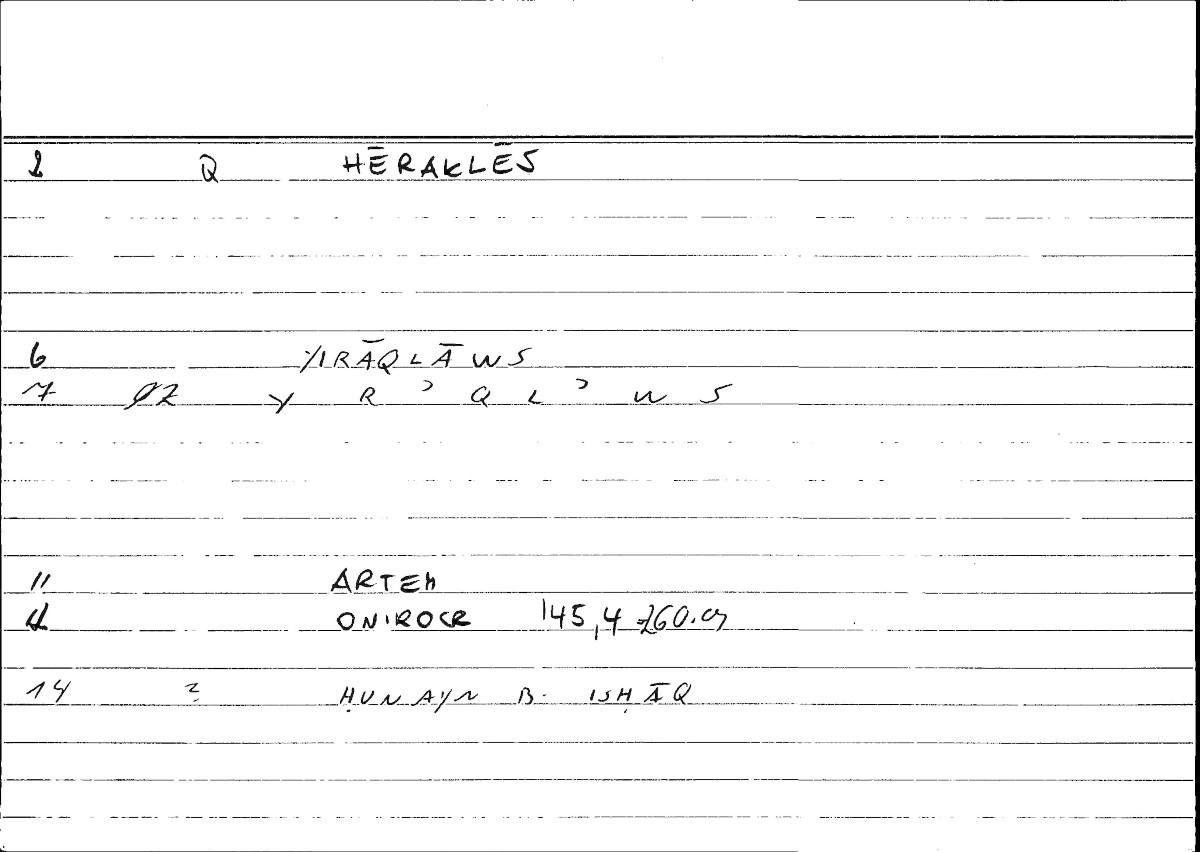 2 Q HĒRAKLĒS
6 IRĀQLĀWS
7 ØZ Y R ʾ Q L ʾ W S
11 ARTEM
ONIROCR 145,4
14 2 ḤUNAYN B. ISḤĀQ